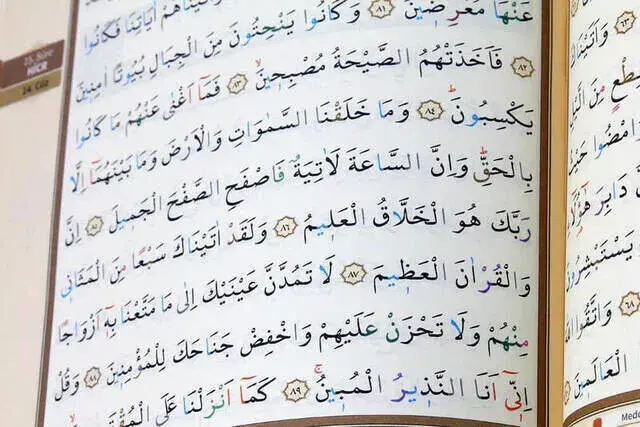 15. Sûre
HİCR
14. Cüz
عَنْهَا مُعْرِضٖينَۙ ﴿٨١﴾ وَكَانُوا يَنْحِتُونَ مِنَ الْجِبَالِ بُيُوتًا اٰمِنٖينَ
﴿٨٢﴾ فَاَخَذَتْهُمُ الصَّيْحَةُ مُصْبِحٖينَۙ ﴿٨٣﴾ فَمَٓا اَغْنٰى عَنْهُمْ مَا كَانُوا
يَكْسِبُونَۜ ﴿٨٤﴾ وَمَا خَلَقْنَا السَّمٰوَاتِ وَالْاَرْضَ وَمَا بَيْنَهُمَٓا اِلَّا
بِالْحَقِّۜ وَاِنَّ السَّاعَةَ لَاٰتِيَةٌ فَاصْفَحِ الصَّفْحَ الْجَمٖيلَ ﴿٨٥﴾ اِنَّ
رَبَّكَ هُوَ الْخَلَّاقُ الْعَلٖيمُ ﴿٨٦﴾ وَلَقَدْ اٰتَيْنَاكَ سَبْعًا مِنَ الْمَثَانٖي
وَالْقُرْاٰنَ الْعَظٖيمَ ﴿٨٧﴾ لَا تَمُدَّنَّ عَيْنَيْكَ اِلٰى مَا مَتَّعْنَا بِهٖٓ اَزْوَاجًا
مِنْهُمْ وَلَا تَحْزَنْ عَلَيْهِمْ وَاخْفِضْ جَنَاحَكَ لِلْمُؤْمِنٖينَ ﴿٨٨﴾ وَقُلْ
اِنّٖٓي اَنَا النَّذٖيرُ الْمُبٖينُۚ ﴿٨٩﴾ كَمَٓا اَنْزَلْنَا عَلَى